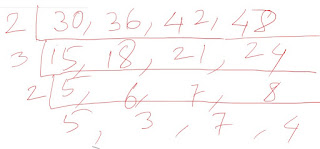 2 | 30, 36, 42, 48
3 | 15, 18, 21, 24
2 | 5, 6, 7, 8
5, 3, 7, 4